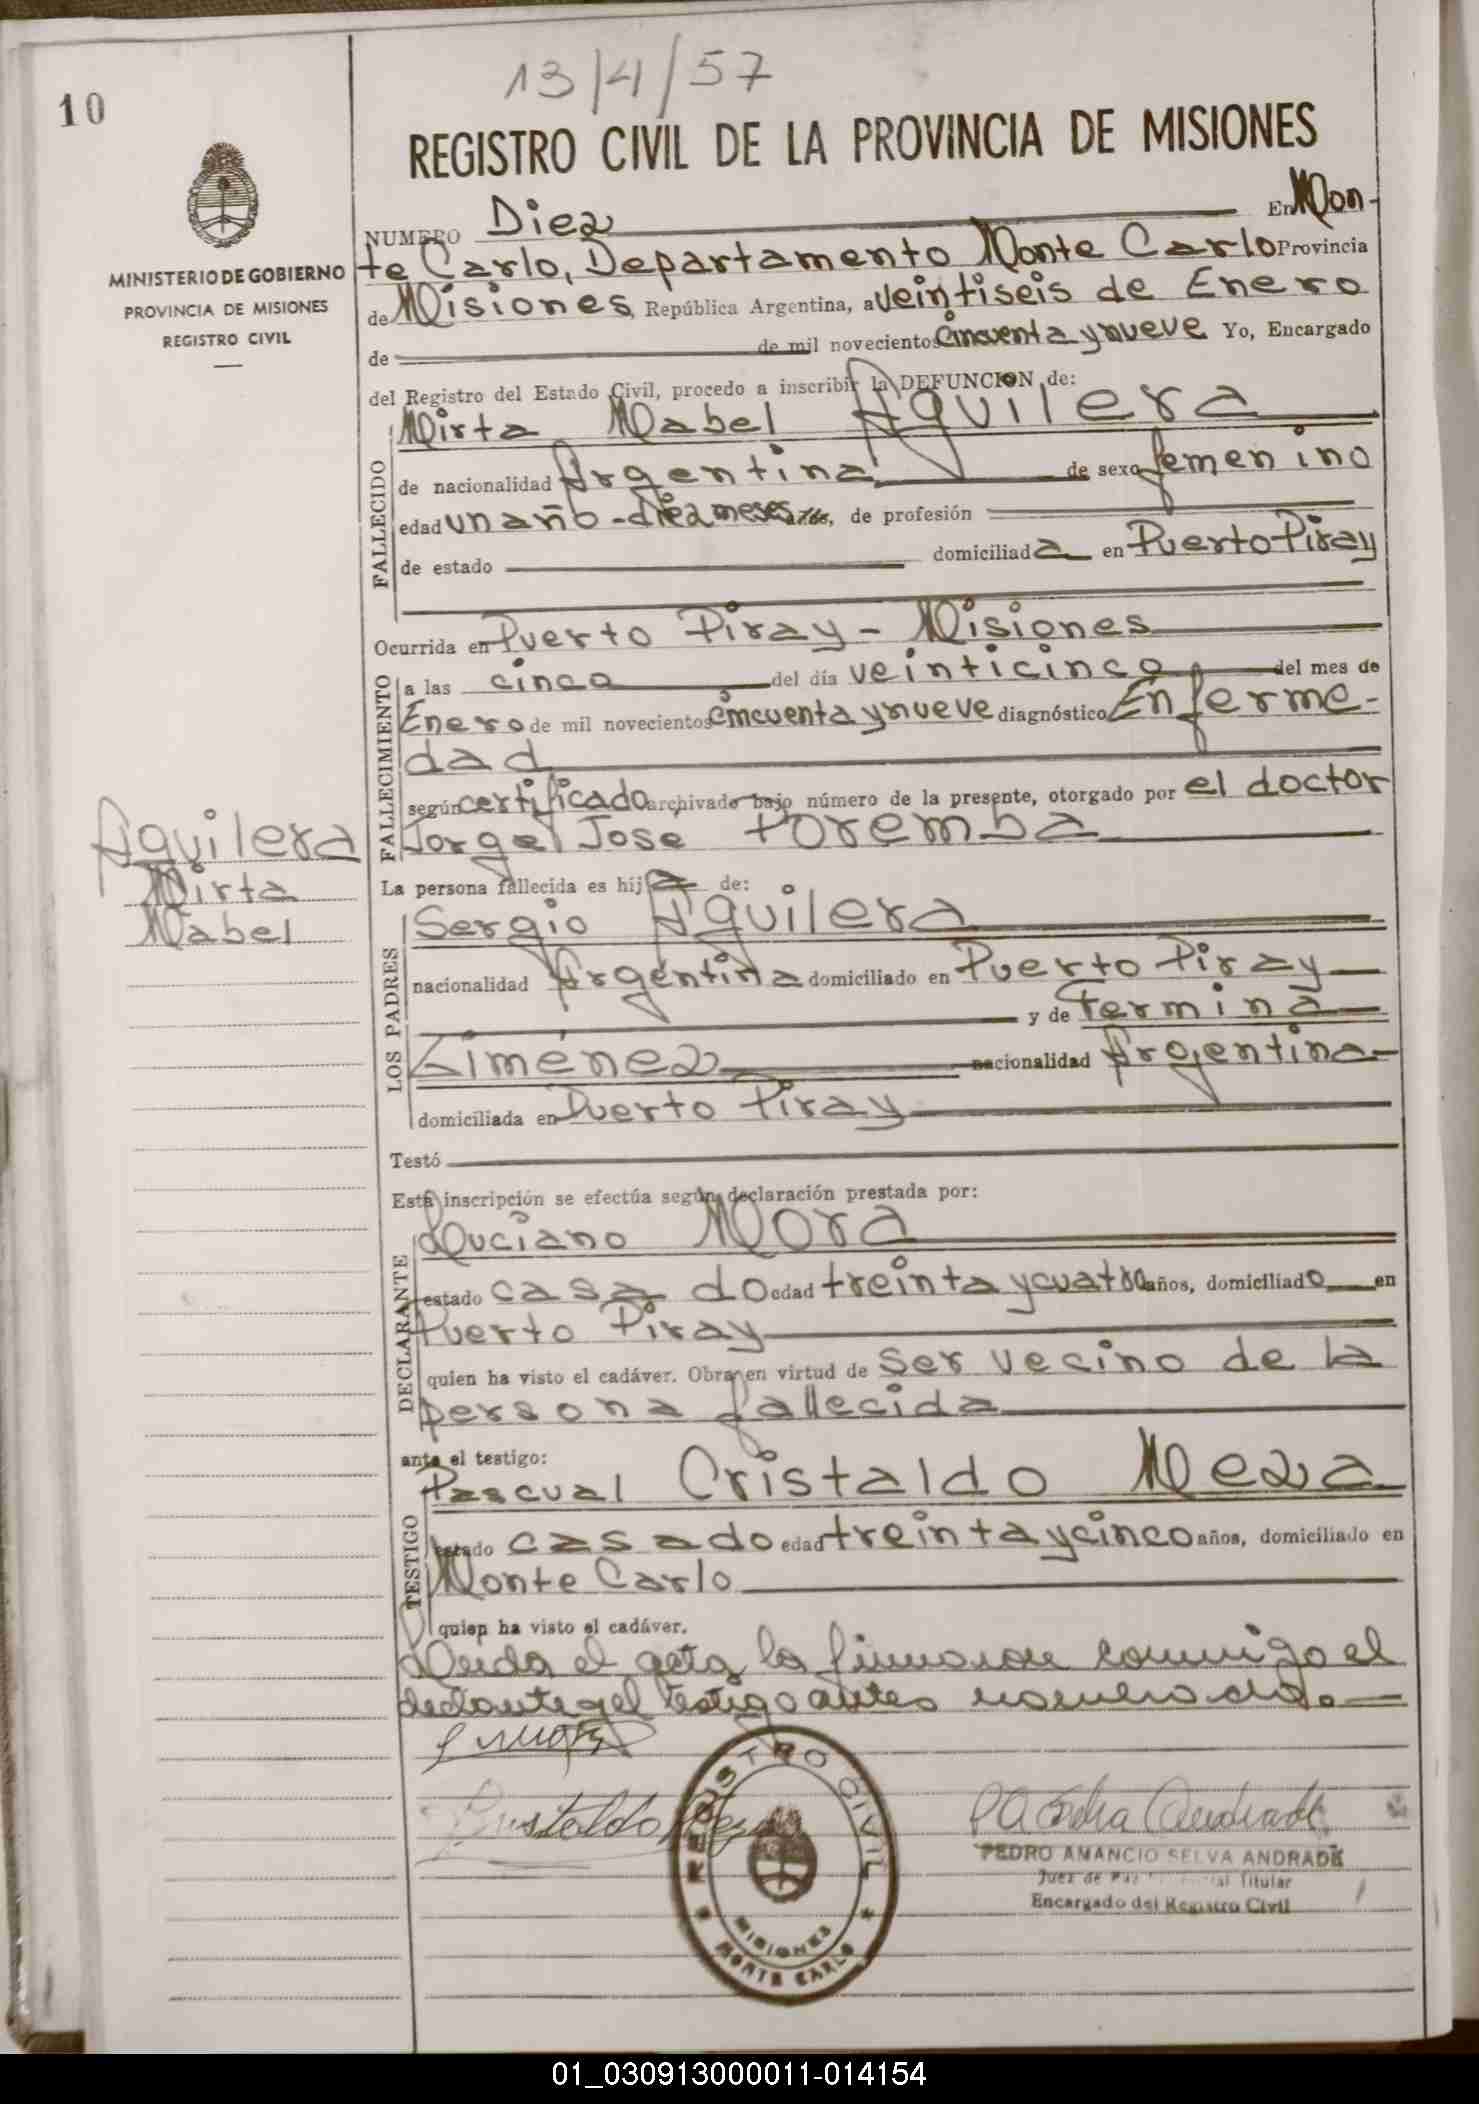 13/4/57
10
REGISTRO CIVIL DE LA PROVINCIA DE MISIONES
MINISTERIO DE GOBIERNO
PROVINCIA DE MISIONES
REGISTRO CIVIL
NUMERO Diez En Mon-
te Carlo, Departamento Monte Carlo Provincia
de Misiones, República Argentina, a veintiseis de Enero
de de mil novecientos cincuenta y nueve Yo, Encargado
del Registro del Estado Civil, procedo a inscribir la DEFUNCION de:
FALLECIDO
Mirta Mabel Aguilera
de nacionalidad Argentina de sexo femenino
edad un año - diez meses años, de profesión
de estado domiciliada en Puerto Piray
Ocurrida en Puerto Piray - Misiones
FALLECIMIENTO
a las cinco del día veinticinco del mes de
Enero de mil novecientos cincuenta y nueve diagnóstico Enferme-
dad
según certificado archivado bajo número de la presente, otorgado por el doctor
Jorge Jose Poremba
Aguilera
Mirta
Mabel
La persona fallecida es hija de:
LOS PADRES
Sergio Aguilera
nacionalidad Argentina domiciliado en Puerto Piray
y de Fermina
Gimenez nacionalidad Argentina
domiciliada en Puerto Piray
Testó
Esta inscripción se efectúa según declaración prestada por:
DECLARANTE
Luciano Mora
estado casado edad treinta y cuatro años, domiciliado en
Puerto Piray
quien ha visto el cadáver. Obra en virtud de ser vecino de la
persona fallecida
ante el testigo:
TESTIGO
Pascual Cristaldo Meza
estado casado edad treinta y cinco años, domiciliado en
Monte Carlo
quien ha visto el cadáver.
Leida el acta la firmaron conmigo el
declante y el testigo antes nomenorado.
Cristaldo Meza
REGISTRO CIVIL
MISIONES
MONTE CARLO
PEDRO AMANCIO SELVA ANDRADE
Juez de Paz Titular
Encargado del Registro Civil
01_030913000011-014154